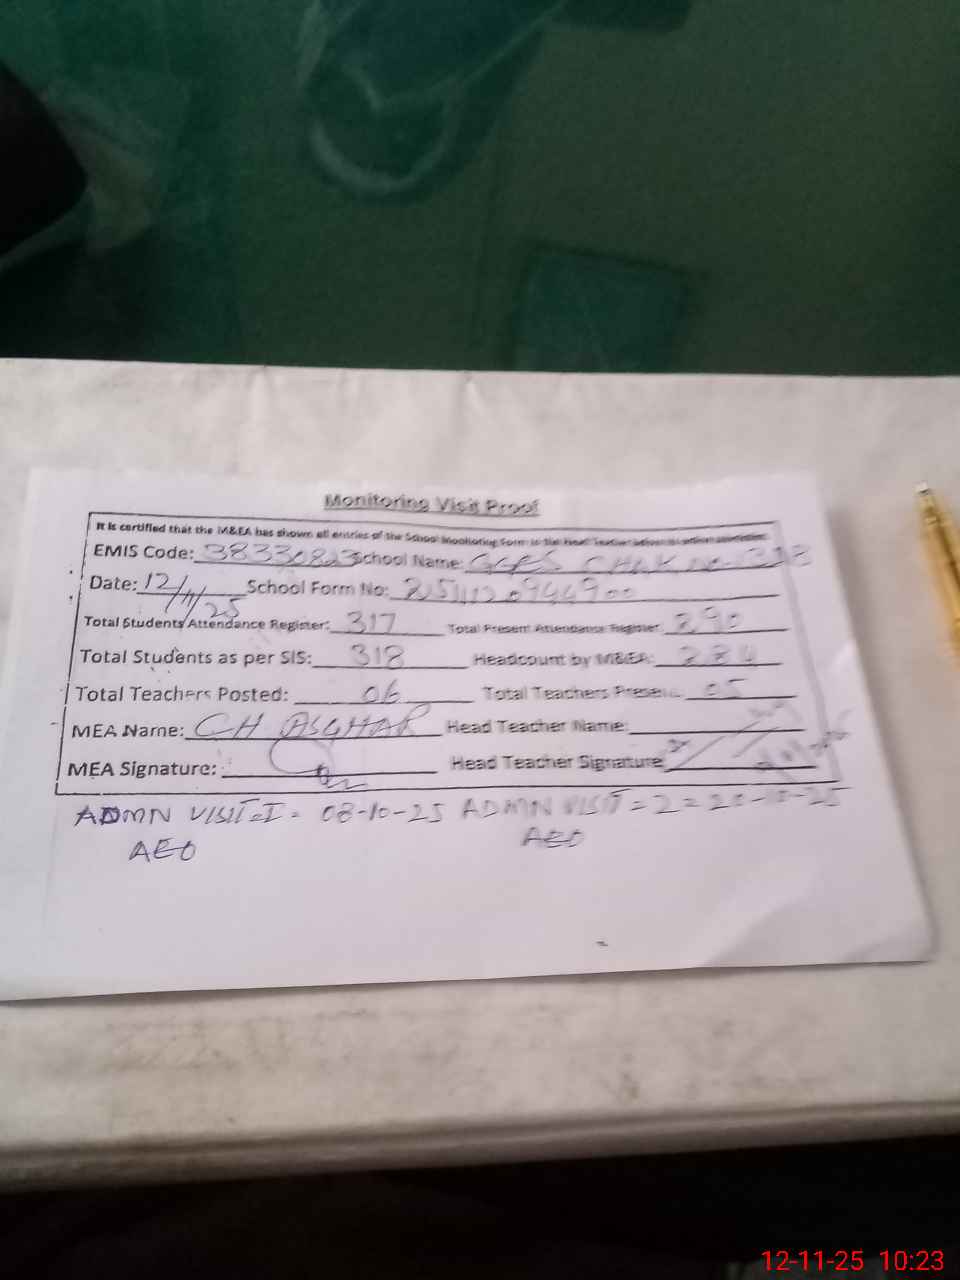 Monitoring Visit Proof
It is certified that the M&EA has shown all entries of the School Monitoring Form to the Head Teacher
EMIS Code: 38330823 School Name: GGPS CHAK No.
Date: 12/11/25 School Form No:
Total Students Attendance Register: 317 Total Present Attendance Register: 290
Total Students as per SIS: 318 Headcount by M&EA: 284
Total Teachers Posted: 06 Total Teachers Present: 05
MEA Name: CH ASGHAR Head Teacher Name:
MEA Signature: Head Teacher Signature
ADMN VISIT=I= 08-10-25 ADMN VISIT=2=20-10-25
AEO AEO
12-11-25 10:23